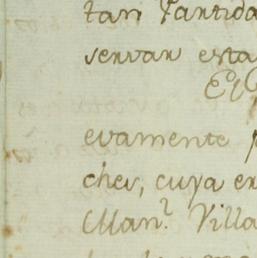 tan Partida
servar esta
El
evamente p
ches, cuya ex
Man.l Villa